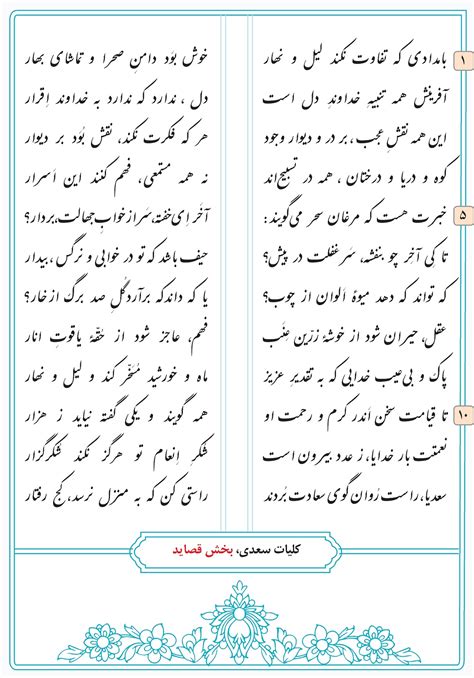 ۱ بامدادی که تفاوت نکند لیل و نهار خوش بوَد دامنِ صحرا و تماشای بهار
آفرینش همه تنبیهِ خداوندِ دل است دل ، ندارد که ندارد به خداوند اِقرار
این همه نقشِ عجب، بر در و دیوارِ وجود هر که فکرت نکند، نقش بُوَد بر دیوار
کوه و دریا و درختان ، همه در تسبیح‌اند نه همه مستمعی، فهم کنند این اَسرار
۵ خبرت هست که مرغان سَحر می‌گویند: آخَر اِی خفته، سَر از خوابِ جهالت، بردار؟
تا کی آخر چو بنفشه، سَرِ غفلت در پیش؟ حیف باشد که تو در خوابی و نرگس ، بیدار
که تواند که دهد میوهٔ اَلوان از چوب؟ یا که داند که برآرد گُلِ صد برگ از خار؟
عقل، حیران شود از خوشهٔ زرّین عِنَب فهم، عاجز شود از حُقّهٔ یاقوتِ انار
پاک و بی‌عیب خدایی که به تقدیرِ عزیز ماه و خورشید مُسَخَّر کند و لیل و نهار
۱۰ تا قیامت سخن اَندر کَرم و رحمت او همه گویند و یکی گفته نیاید ز هزار
نعمتت بار خدایا، ز عدد بیرون است شکرِ اِنعام تو هرگز نکند شکرگزار
سعدیا، راست رُوان گوی سعادت بُردند راستی کن که به منزل نرسد، کج رفتار
کلیات سعدی، بخش قصاید